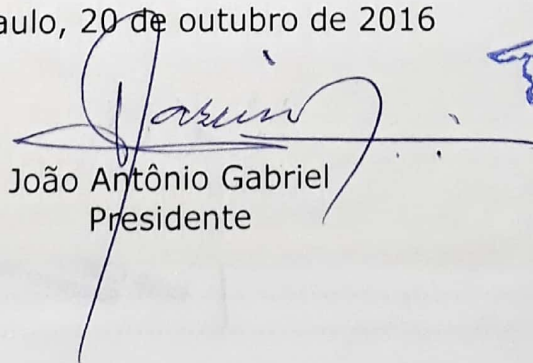 aulo, 20 de outubro de 2016
João Antônio Gabriel
Presidente